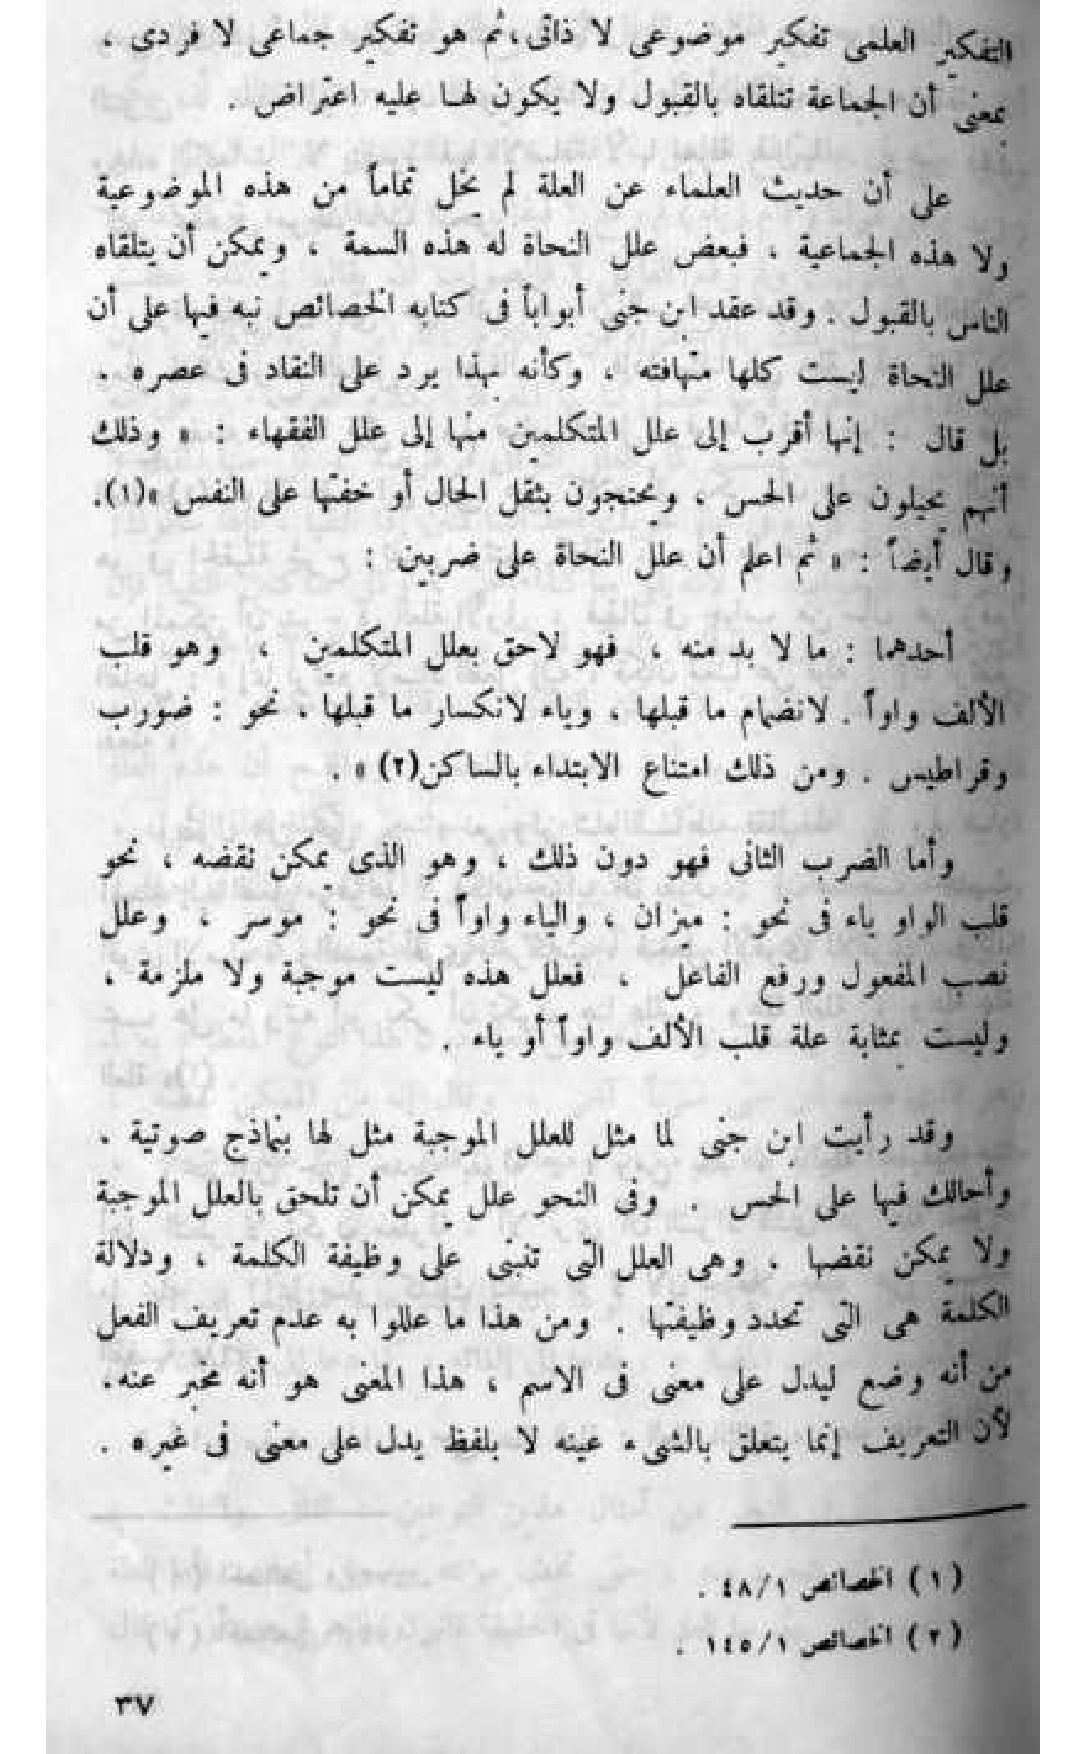 التفكير العلمى تفكير موضوعى لا ذاتى، ثم هو تفكير جماعى لا فردى ،
بمعنى أن الجماعة تتلقاه بالقبول ولا يكون لها عليه اعتراض .
على أن حديث العلماء عن العلة لم يخل تماماً من هذه الموضوعية
ولا هذه الجماعية ، فبعض علل النحاة له هذه السمة ، ويمكن أن يتلقاه
الناس بالقبول . وقد عقد ابن جنى أبواباً فى كتابه الخصائص نبه فيها على أن
علل النحاة ليست كلها متهافته ، وكأنه بهذا يرد على النقاد فى عصره .
بل قال : إنها أقرب إلى علل المتكلمين منها إلى علل الفقهاء : « وذلك
أنهم يحيلون على الحس ، ويحتجون بثقل الحال أو خفتها على النفس »(١).
وقال أيضاً : « ثم اعلم أن علل النحاة على ضربين :
أحدهما : ما لا بد منه ، فهو لاحق بعلل المتكلمين ، وهو قلب
الألف واواً . لانضمام ما قبلها ، وياء لانكسار ما قبلها ، نحو : ضورب
وقراطيس . ومن ذلك امتناع الابتداء بالساكن(٢) » .
وأما الضرب الثانى فهو دون ذلك ، وهو الذى يمكن نقضه ، نحو
قلب الواو ياء فى نحو : ميزان ، والياء واواً فى نحو : موسر ، وعلل
نصب المفعول ورفع الفاعل ، فعلل هذه ليست موجبة ولا ملزمة ،
وليست بمثابة علة قلب الألف واواً أو ياء .
وقد رأيت ابن جنى لما مثل للعلل الموجبة مثل لها بنماذج صوتية ،
وأحالك فيها على الحس . وفى النحو علل يمكن أن تلحق بالعلل الموجبة
ولا يمكن نقضها ، وهى العلل التى تنبنى على وظيفة الكلمة ، ودلالة
الكلمة هى التى تحدد وظيفتها . ومن هذا ما عللوا به عدم تعريف الفعل
من أنه وضع ليدل على معنى فى الاسم ، هذا المعنى هو أنه مخبر عنه.
لأن التعريف إنما يتعلق بالشىء عينه لا بلفظ يدل على معنى فى غيره .
(١) الخصائص ٤٨/١ .
(٢) الخصائص ١٤٥/١ .
٣٧